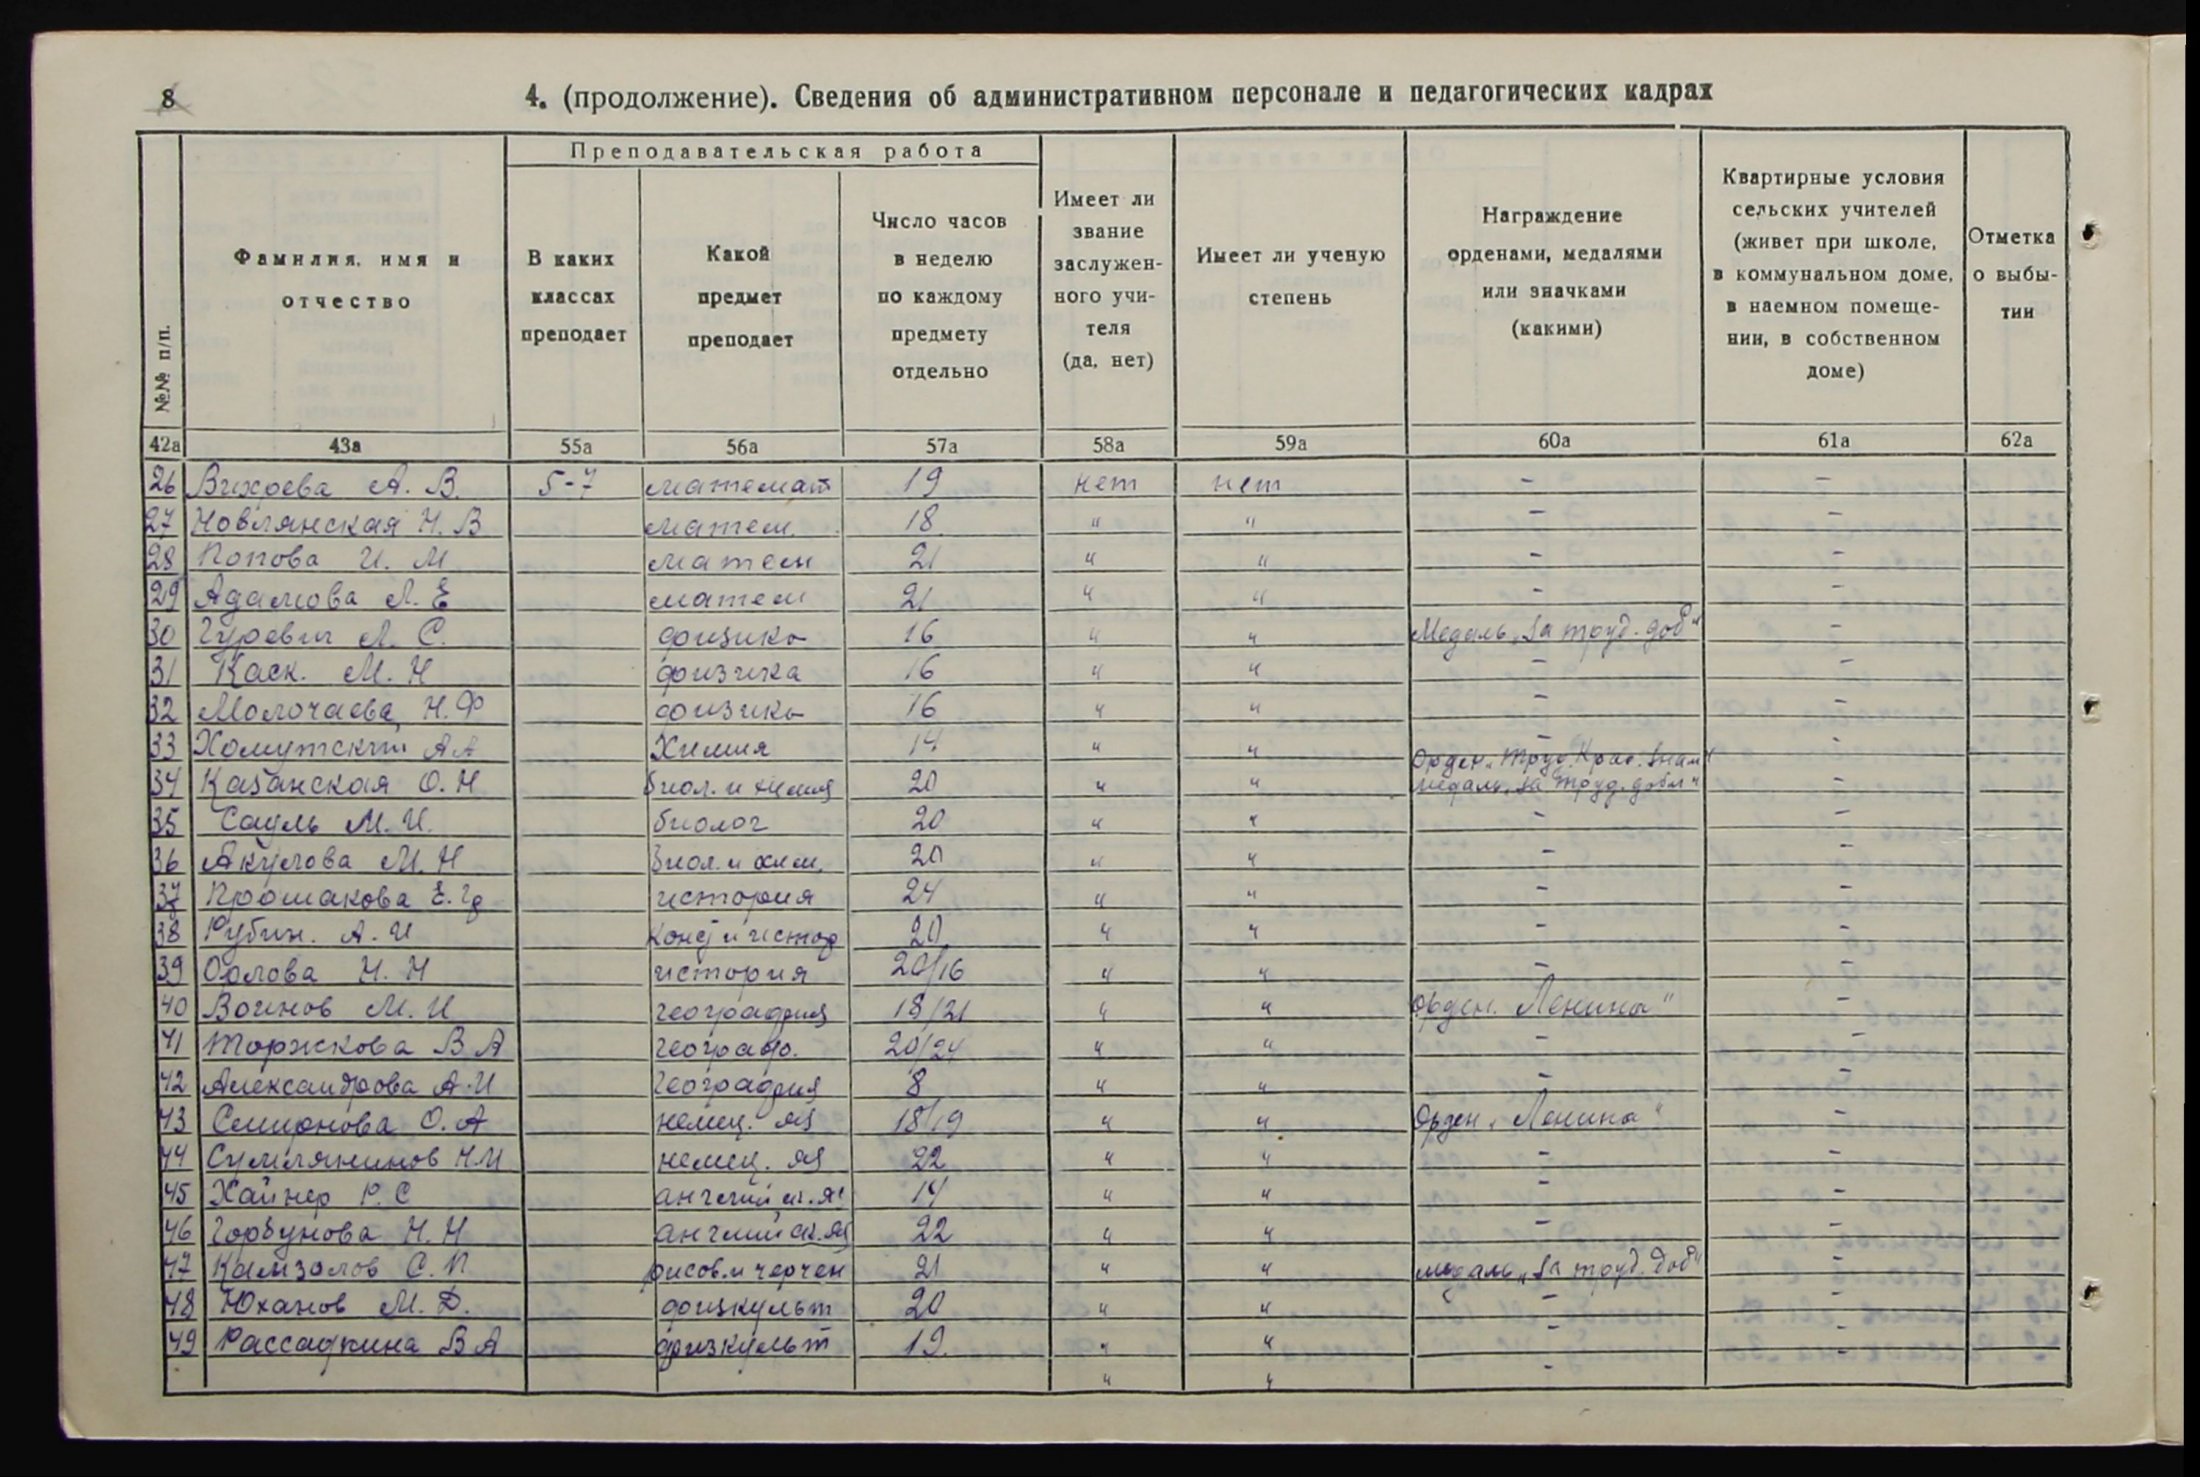 8
4. (продолжение). Сведения об административном персонале и педагогических кадрах
№№ п/п.
Фамилия, имя и отчество
Преподавательская работа
В каких классах преподает
Какой предмет преподает
Число часов в неделю по каждому предмету отдельно
Имеет ли звание заслужен-ного учи-теля (да, нет)
Имеет ли ученую степень
Награждение орденами, медалями или значками (какими)
Квартирные условия сельских учителей (живет при школе, в коммунальном доме, в наемном помеще-нии, в собственном доме)
Отметка о выбы-тии
42а 43а 55а 56а 57а 58а 59а 60а 61а 62а
26 Вихрева А. В. 5-7 математ 19 нет нет – –
27 Новлянская Н. В матем. 18 " " – –
28 Попова И. М матем 21 " " – –
29 Адамова Л. Е матем 21 " " – –
30 Гуревич Л. С. физика 16 " " Медаль „За труд. доб" –
31 Каск. М. Н физика 16 " " – –
32 Молочаева Н. Ф физика 16 " " – –
33 Хомутский А А Химия 14 " " – –
34 Казанская О. Н биол. и химия 20 " " Орден „Труд. Крас. Знам" медаль „за труд. добл" –
35 Сауль М. И. биолог 20 " " – –
36 Акулова М. Н биол. и хим. 20 " " – –
37 Прошакова Е. Гд история 24 " " – –
38 Рубин. А. И конст и истор 20 " " – –
39 Орлова Н. Н история 20/16 " " – –
40 Воинов М. И география 18/21 " " Орден „Ленина" –
41 Торжкова В А географ. 20/24 " " – –
42 Александрова А. И география 8 " " – –
43 Смирнова О. А немец. яз 18/19 " " Орден „Ленина" –
44 Сумлянинов Н М немец. яз 22 " " – –
45 Хайнер Р. С английск. яз 14 " " – –
46 Горбунова Н. Н английск. яз 22 " " – –
47 Камзолов С. П рисов. и черчен 21 " " медаль „За труд. доб" –
48 Юханов М. Д. физкульт 20 " " – –
49 Рассадкина В А физкульт 19. " " – –
" " –